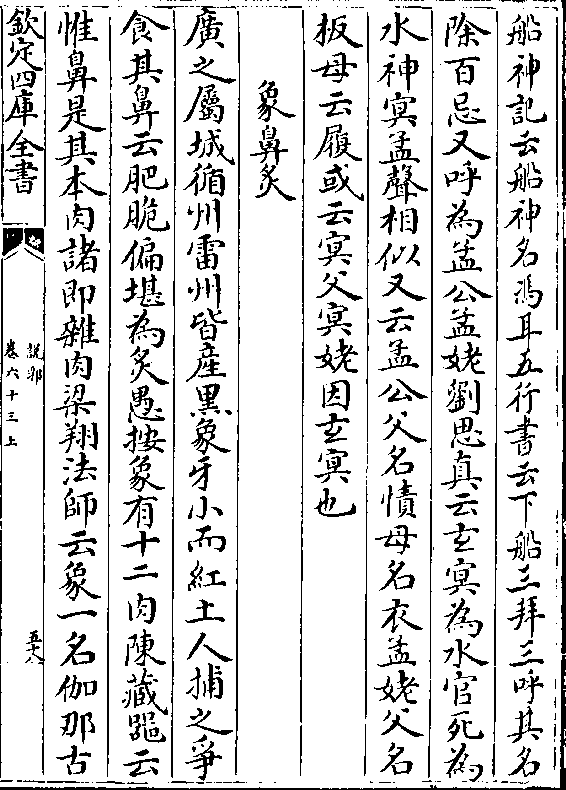 船神記云船神名馮耳五行書云下船三拜三呼其名
除百忌又呼為孟公孟姥劉思真云𤣥冥為水官死為
水神冥孟聲相似又云孟公父名幘母名衣孟姥父名
板母云履或云冥父冥姥因𤣥冥也
象鼻炙
廣之屬城循州雷州皆産黒象牙小而紅土人捕之爭
食其鼻云肥脆偏堪為炙愚按象有十二肉陳藏噐云
惟鼻是其本肉諸即雜肉梁翔法師云象一名伽那古
欽定四庫全書
說郛
卷六十三上
五十八